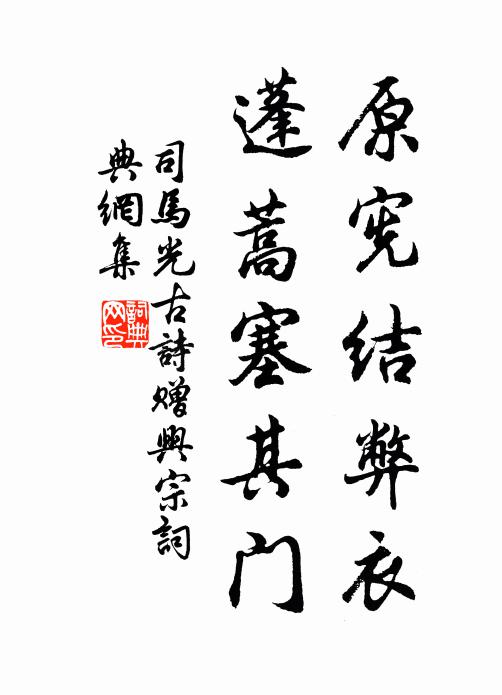 原宪结弊衣
蓬蒿塞其门
司馬光古詩赠興宗詞
典網集
詞典网印